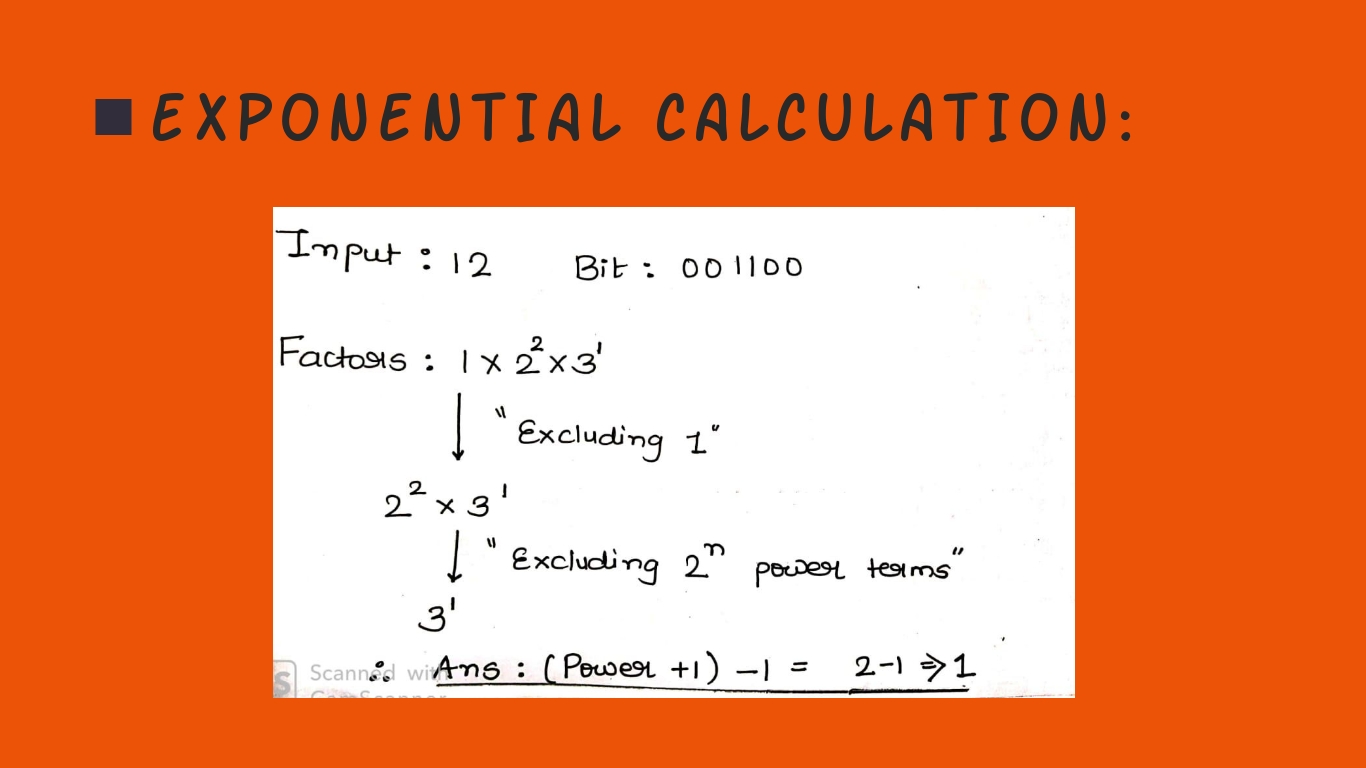 EXPONENTIAL CALCULATION:
Input : 12 Bit : 001100
Factors : 1 x 2² x 3¹
"Excluding 1"
2² x 3¹
"Excluding 2ⁿ power terms"
3¹
∴ Ans : (Power +1) -1 = 2-1 ⇒ 1
Scanned with
CamScanner